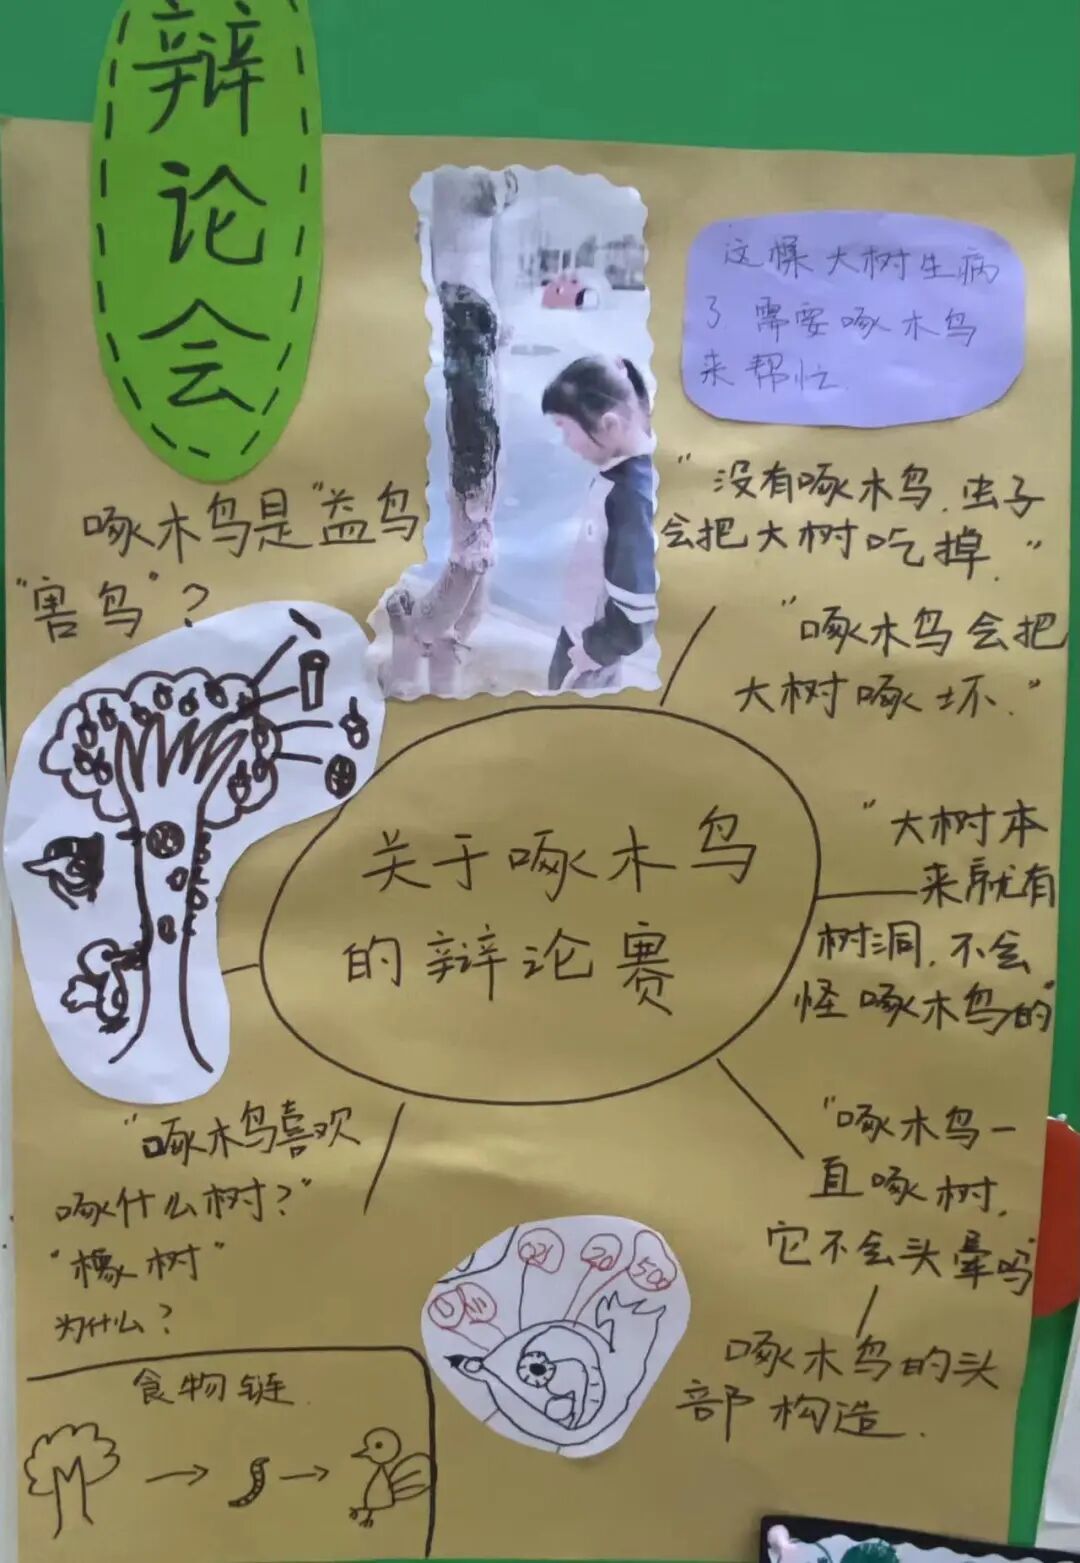 辩
论
会
这棵大树生病
了需要啄木鸟
来帮忙.
啄木鸟是"益鸟
"害鸟"?
"没有啄木鸟.虫子
会把大树吃掉."
"啄木鸟会把
大树啄坏."
关于啄木鸟
的辩论赛
"大树本
来就有
树洞.不会
怪啄木鸟的"
"啄木鸟一
直啄树,
它不会头晕吗"
啄木鸟的头
部构造.
"啄木鸟喜欢
啄什么树?"
"橡树"
为什么?
食物链.
20
500